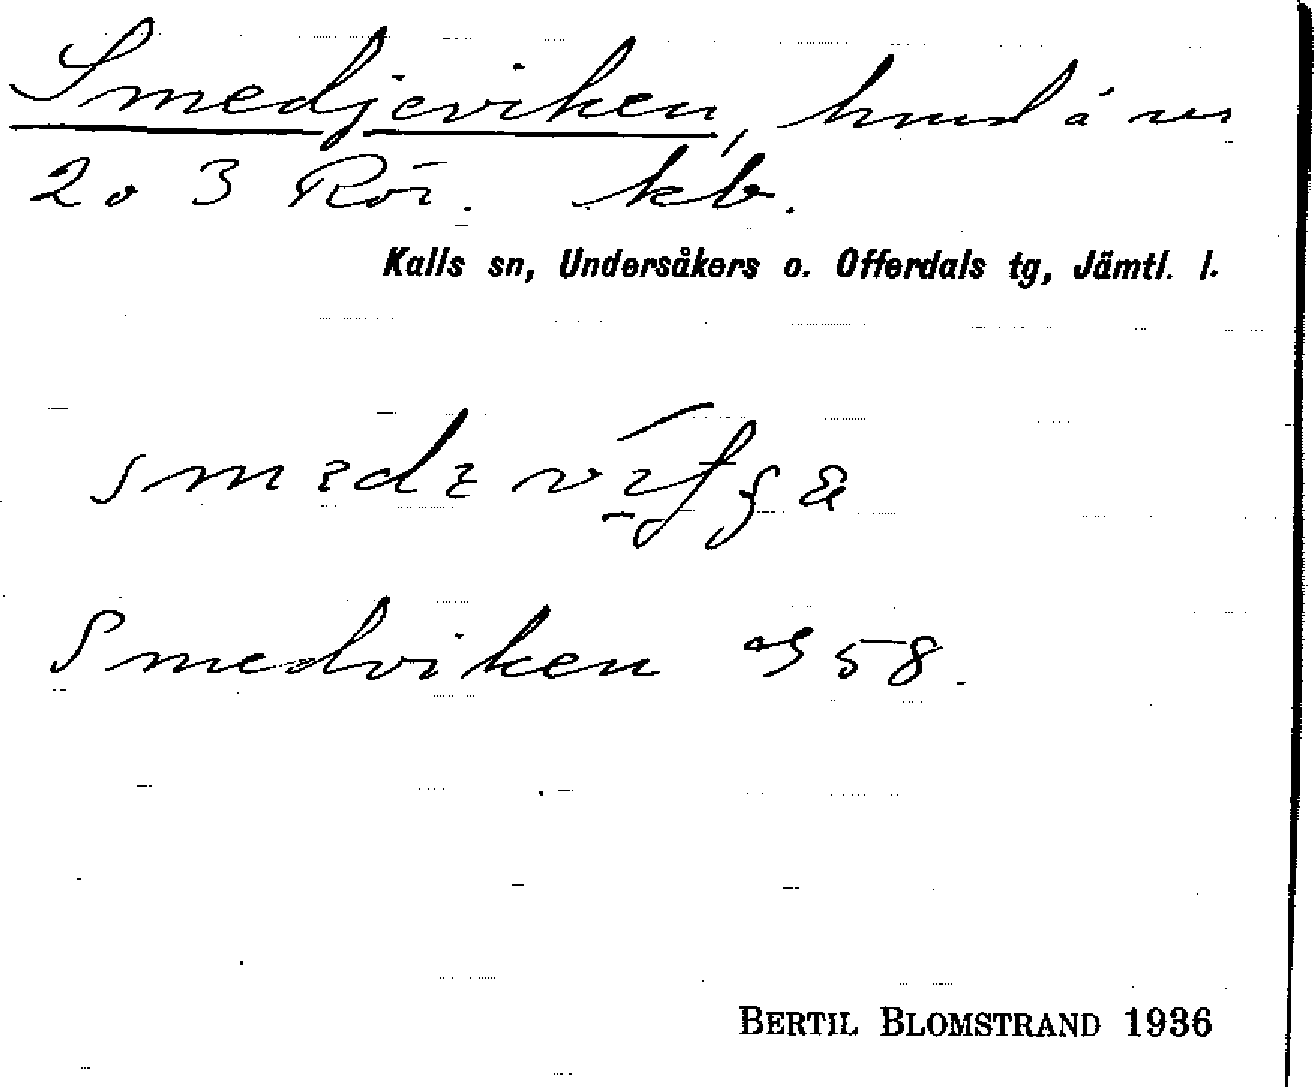 Smedjeviken, hmd å nr
2 o 3 Rör. kb.
Kalls sn, Undersåkers o. Offerdals tg, Jämtl. l.
Smedviken 58.
BERTIL BLOMSTRAND 1936